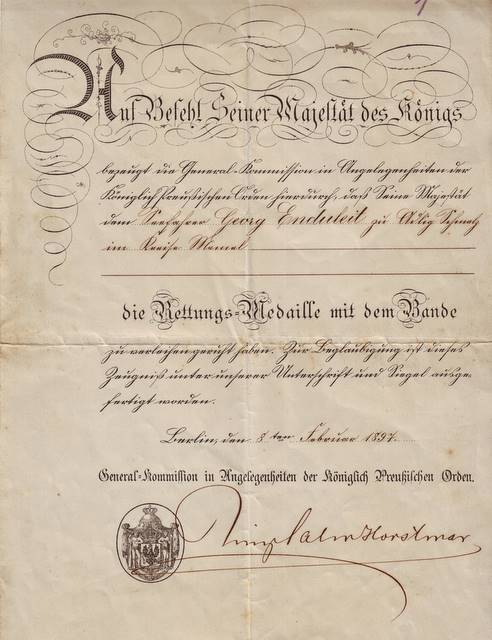 Auf Befehl Seiner Majestät des Königs
bezeugt die General-Kommission in Angelegenheiten der
Königlich Preußischen Orden hierdurch, daß Seine Majestät
dem Seefahrer Georg Enduleit zu Adlig Schmelz
im Kreise Memel
die Rettungs-Medaille mit dem Bande
zu verleihen geruht haben. Zur Beglaubigung ist dieses
Zeugniß unter unserer Unterschrift und Siegel ausge-
fertigt worden.
Berlin, den 8ten Februar 1897.
General-Kommission in Angelegenheiten der Königlich Preußischen Orden.
Salm Horstmar